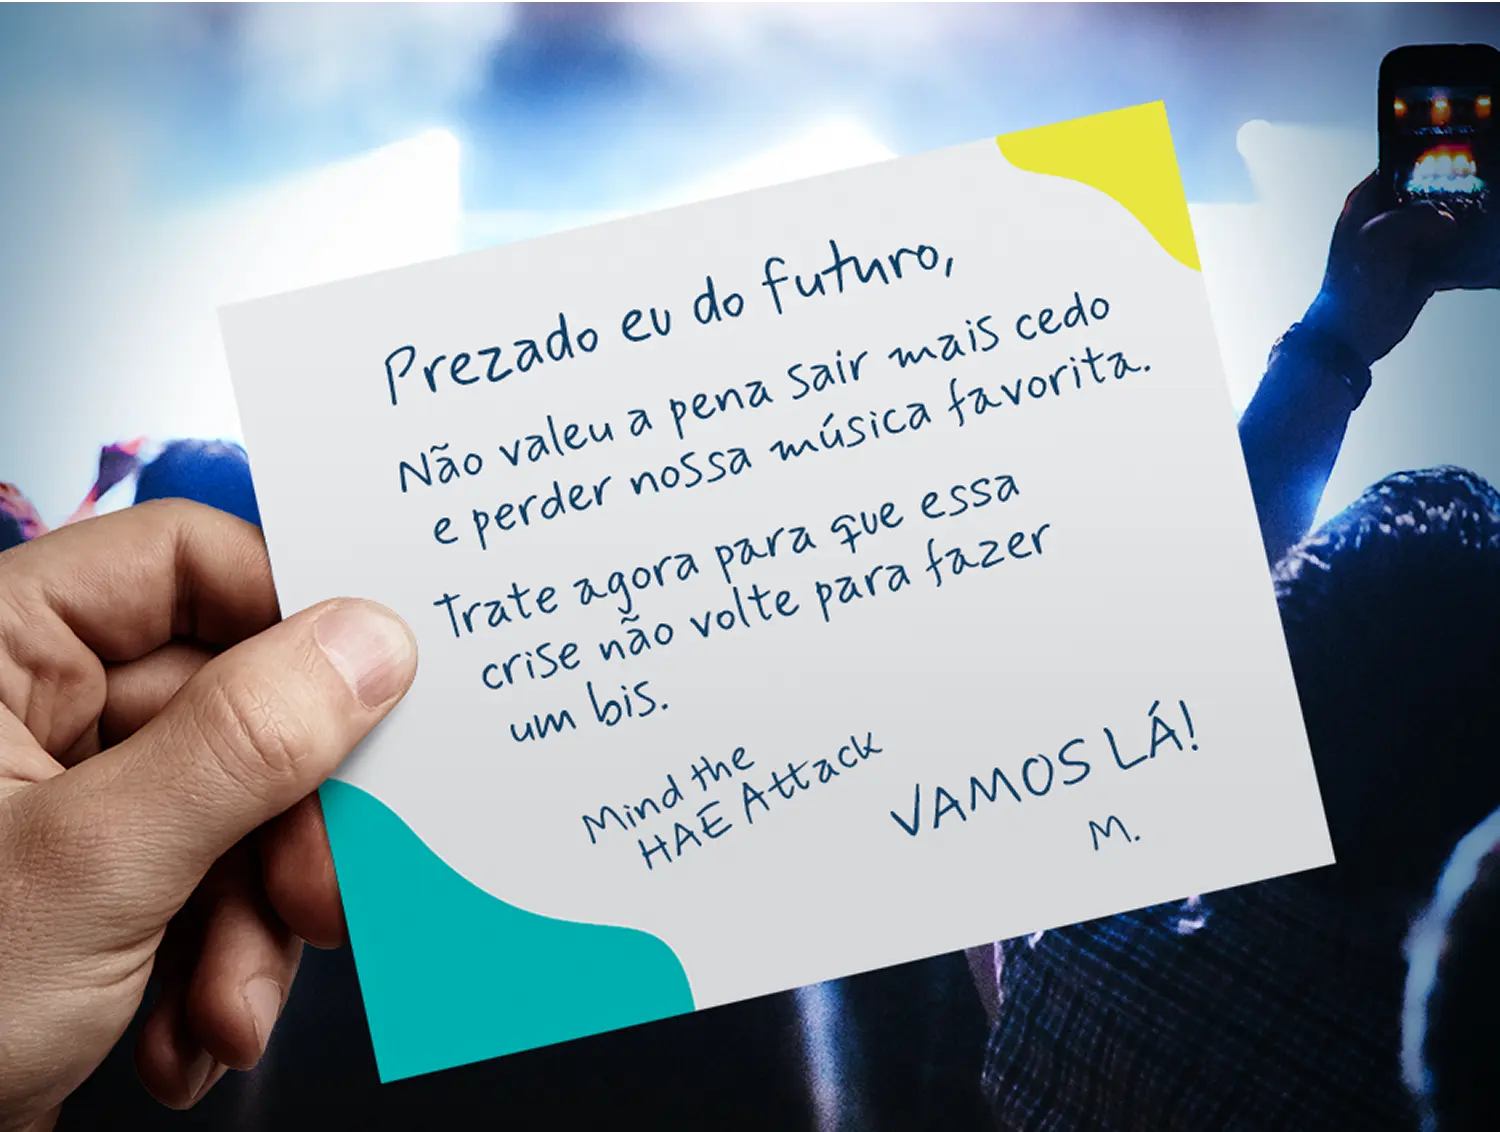 Prezado eu do futuro,
Não valeu a pena sair mais cedo
e perder nossa música favorita.
Trate agora para que essa
crise não volte para fazer
um bis.
Mind the
HAE Attack
VAMOS LÁ!
M.